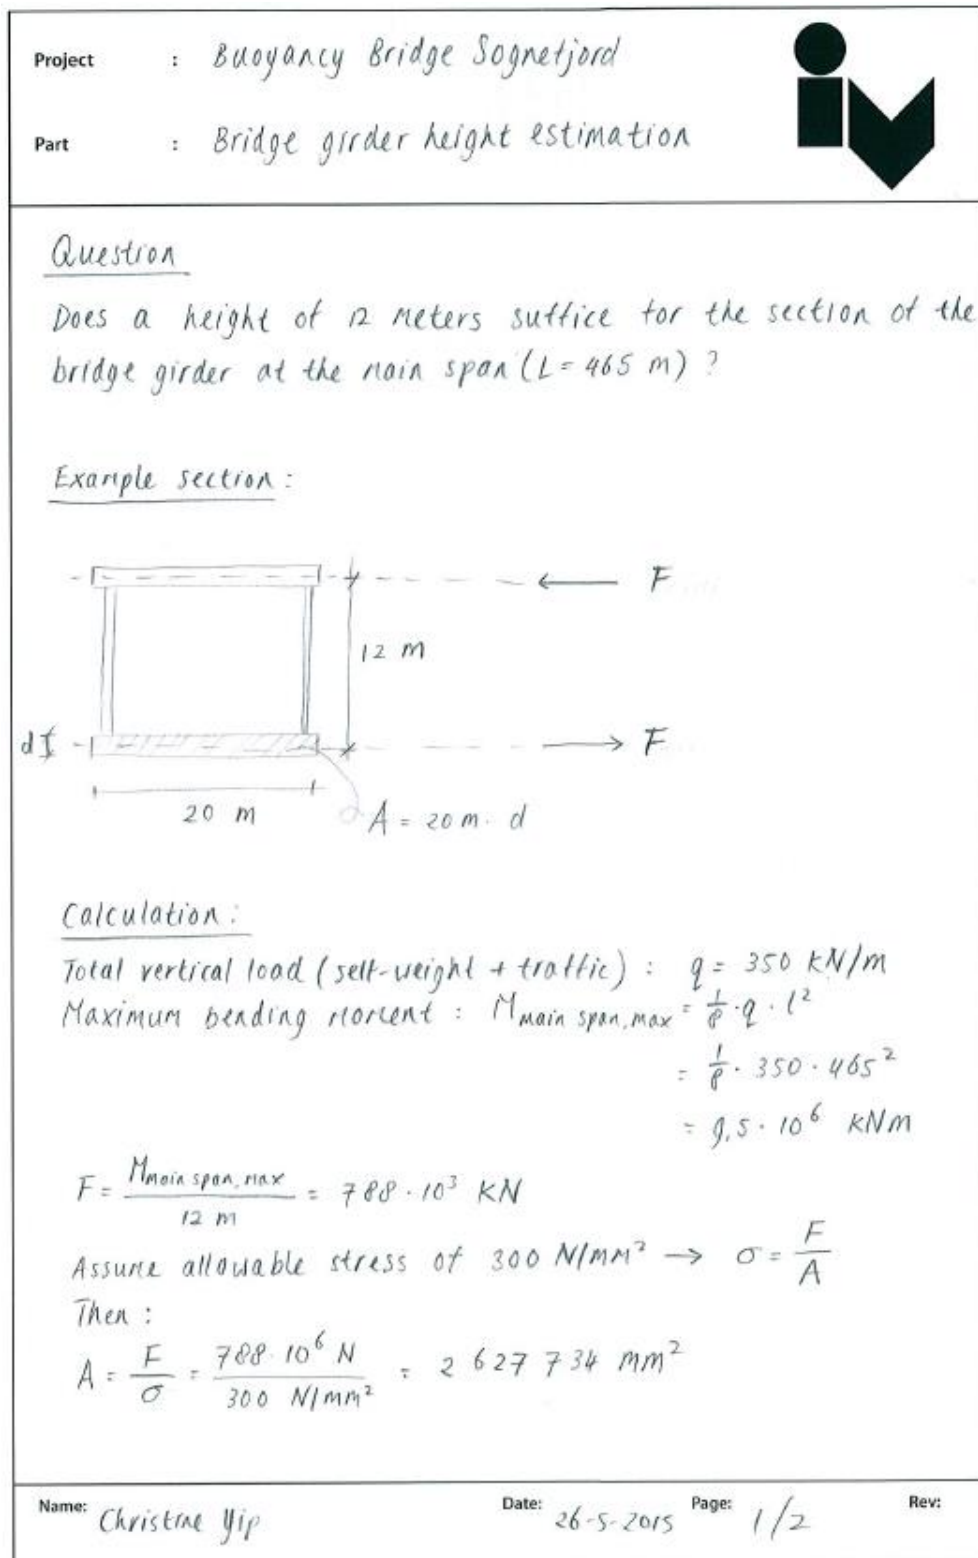 Project : Buoyancy Bridge Sognefjord
iv
Part : Bridge girder height estimation
Question
Does a height of 12 meters suffice for the section of the
bridge girder at the main span (L = 465 m) ?
Example section :
F
12 m
d
F
20 m
A = 20 m · d
Calculation :
Total vertical load (self-weight + traffic) : q = 350 kN/m
Maximum bending moment : M main span, max = 1/8 · q · l²
= 1/8 · 350 · 465²
= 9,5 · 10⁶ kNm
F = M main span, max / 12 m = 788 · 10³ kN
Assume allowable stress of 300 N/mm² → σ = F/A
Then :
A = F/σ = 788 · 10⁶ N / 300 N/mm² = 2 627 734 mm²
Name: Christine Yip Date: 26-5-2015 Page: 1/2 Rev: